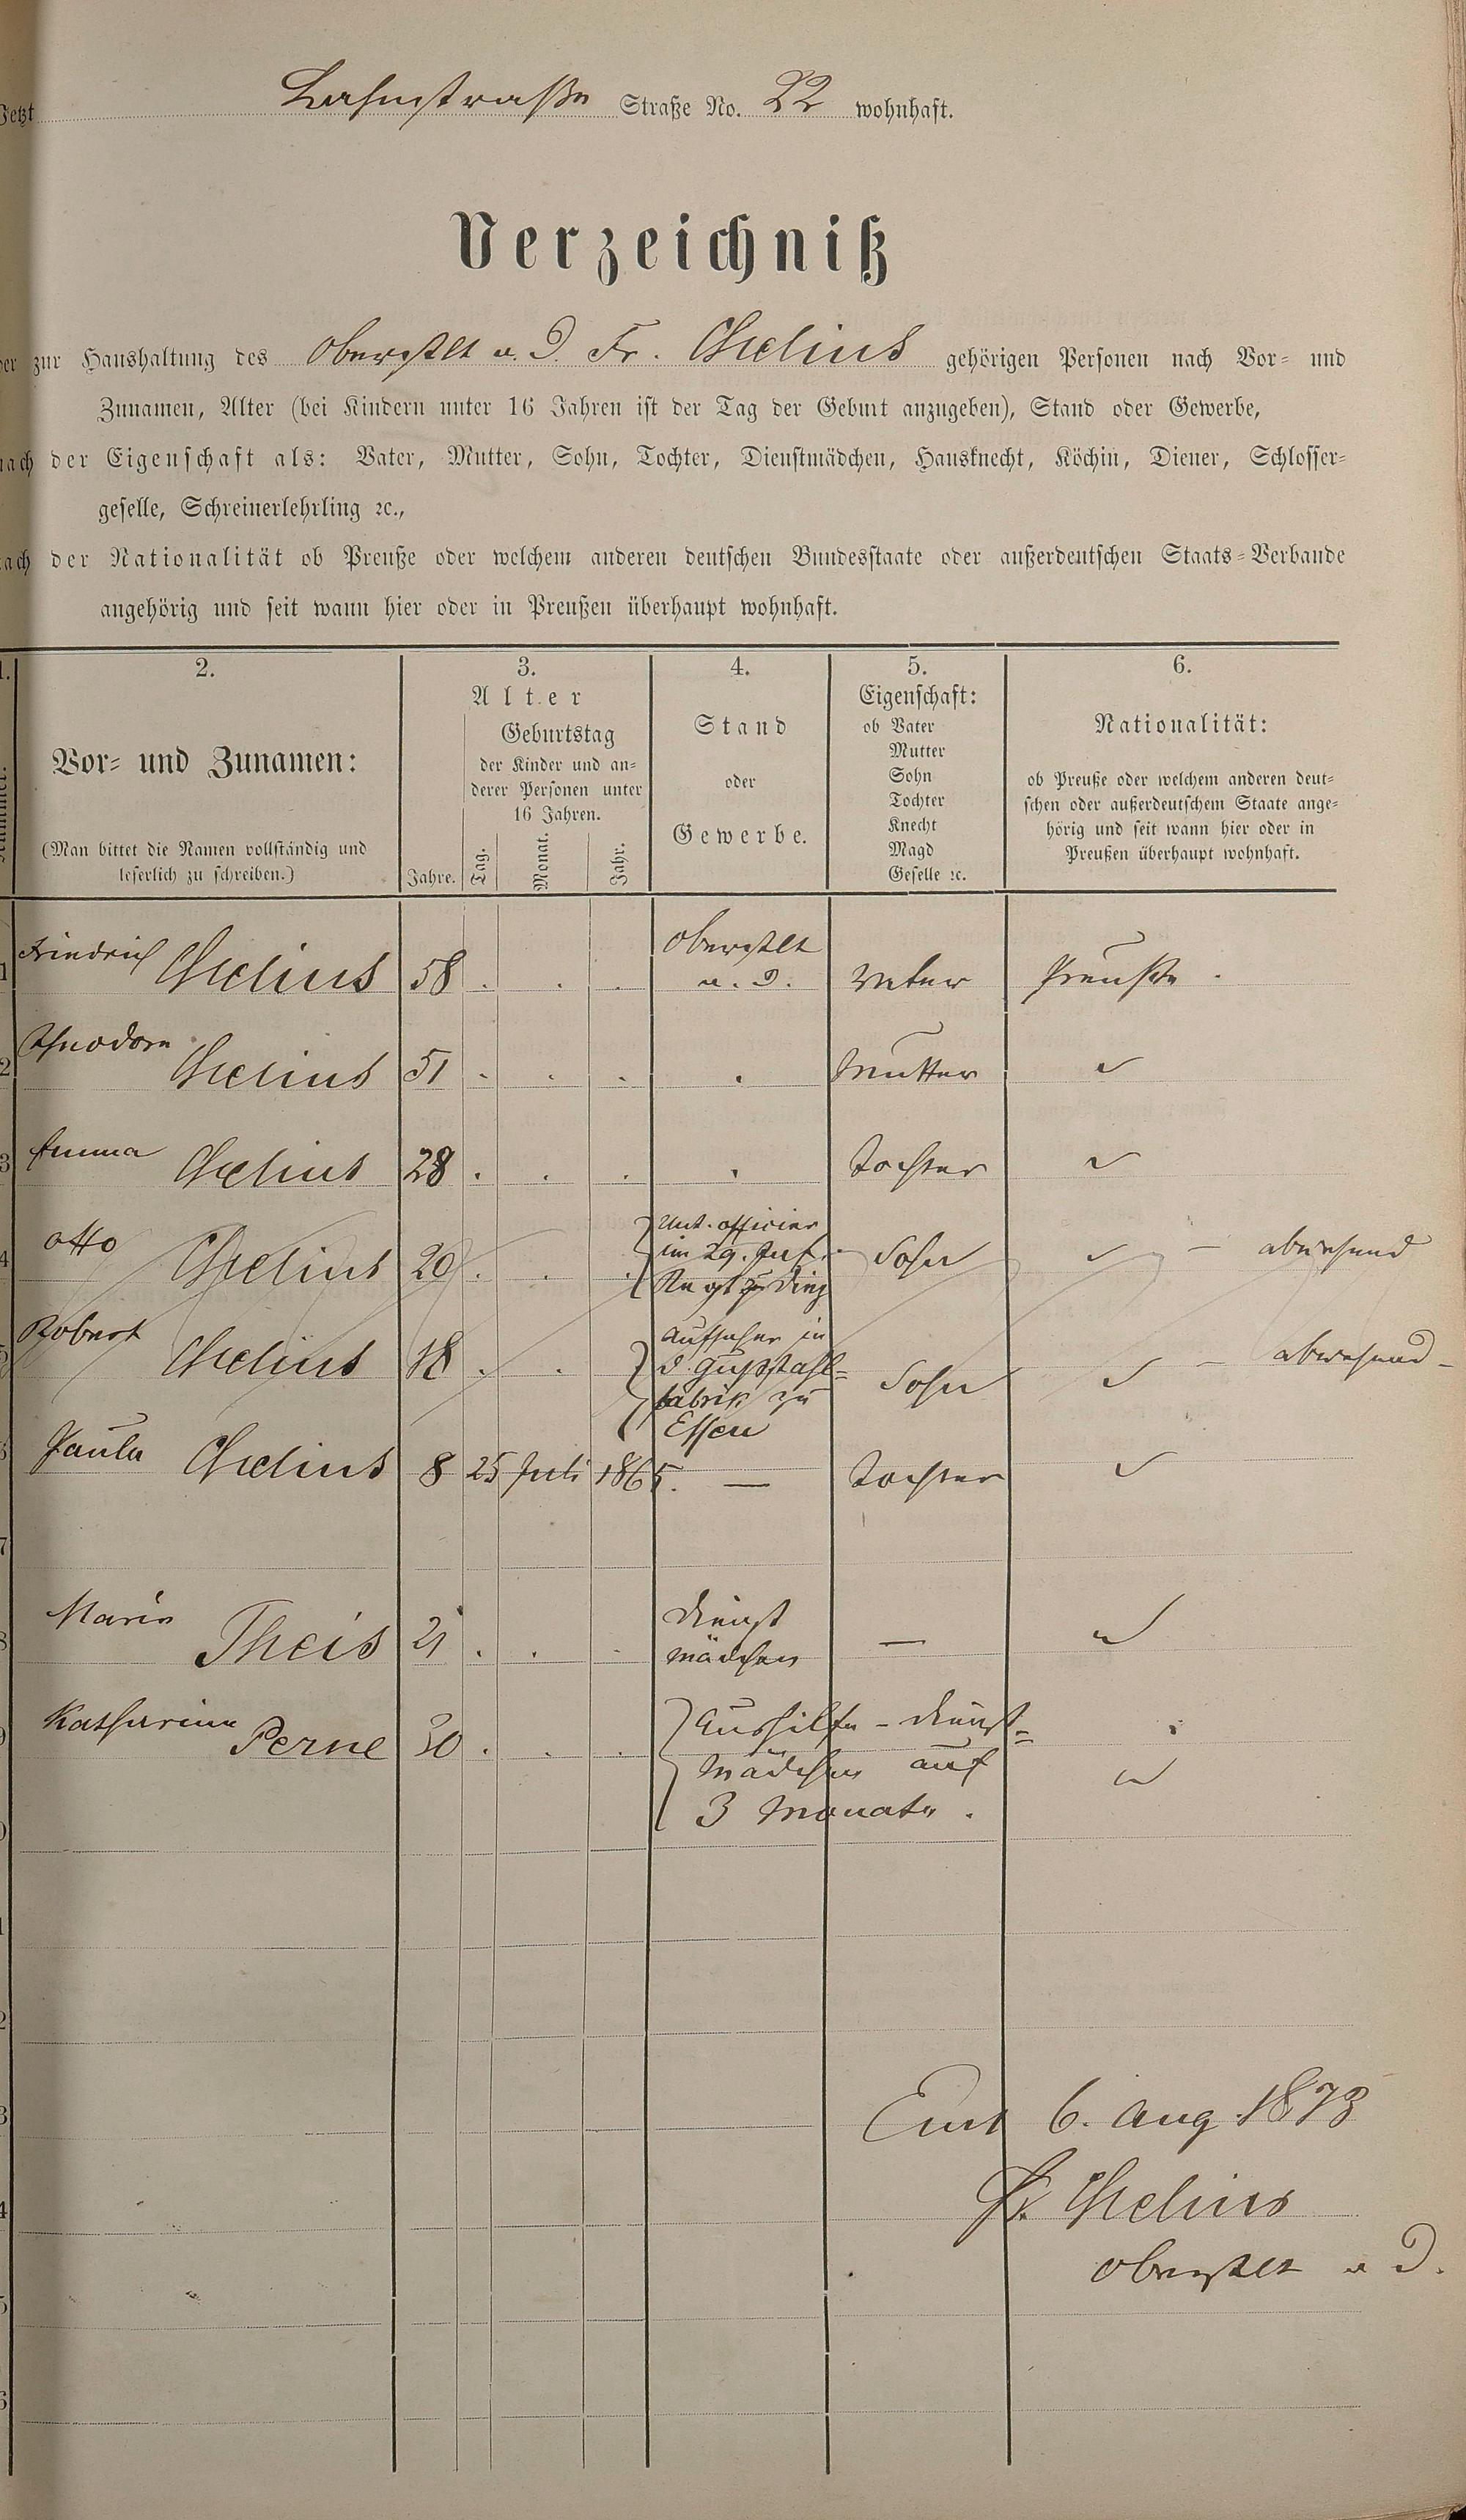 Jetzt Lahnstraße Straße No. 22 wohnhaft.
Verzeichniß
der zur Haushaltung des Oberstlt a. D. Fr. Chelius gehörigen Personen nach Vor- und
Zunamen, Alter (bei Kindern unter 16 Jahren ist der Tag der Geburt anzugeben), Stand oder Gewerbe,
nach der Eigenschaft als: Vater, Mutter, Sohn, Tochter, Dienstmädchen, Hausknecht, Köchin, Diener, Schlosser-
geselle, Schreinerlehrling ꝛc.,
nach der Nationalität ob Preuße oder welchem anderen deutschen Bundesstaate oder außerdeutschen Staats-Verbande
angehörig und seit wann hier oder in Preußen überhaupt wohnhaft.
1. 2. 3. 4. 5. 6.
Vor- und Zunamen:
(Man bittet die Namen vollständig und
leserlich zu schreiben.)
Alter
Jahre.
Geburtstag
der Kinder und an-
derer Personen unter
16 Jahren.
Tag. Monat. Jahr.
Stand
oder
Gewerbe.
Eigenschaft:
ob Vater
Mutter
Sohn
Tochter
Knecht
Magd
Geselle ꝛc.
Nationalität:
ob Preuße oder welchem anderen deut-
schen oder außerdeutschem Staate ange-
hörig und seit wann hier oder in
Preußen überhaupt wohnhaft.
1 Friedrich Chelius 58 . . . Oberstlt
a. D. Vater Preuße .
2 Theodore Chelius 51 . . . . Mutter ~
3 Emma Chelius 28 . . . . Tochter ~
4 Otto Chelius 20 . . . Unt. officier
im 29. Inf.
Regt zu Diez Sohn ~ - abwesend
5 Robert Chelius 18 . . Aufseher in
d. Gußstahl-
fabrik zu
Essen Sohn ~ - abwesend -
6 Paula Chelius 8 25 Juli 1865. — Tochter ~
7
8 Marie Theis 21 . . . Dienst
mädchen — ~
9 Katharina Perne 30 . . . Aushilfe - Dienst-
mädchen auf
3 Monate . ~
Ems 6. Aug 1873
Fr. Chelius
Oberstlt a D.